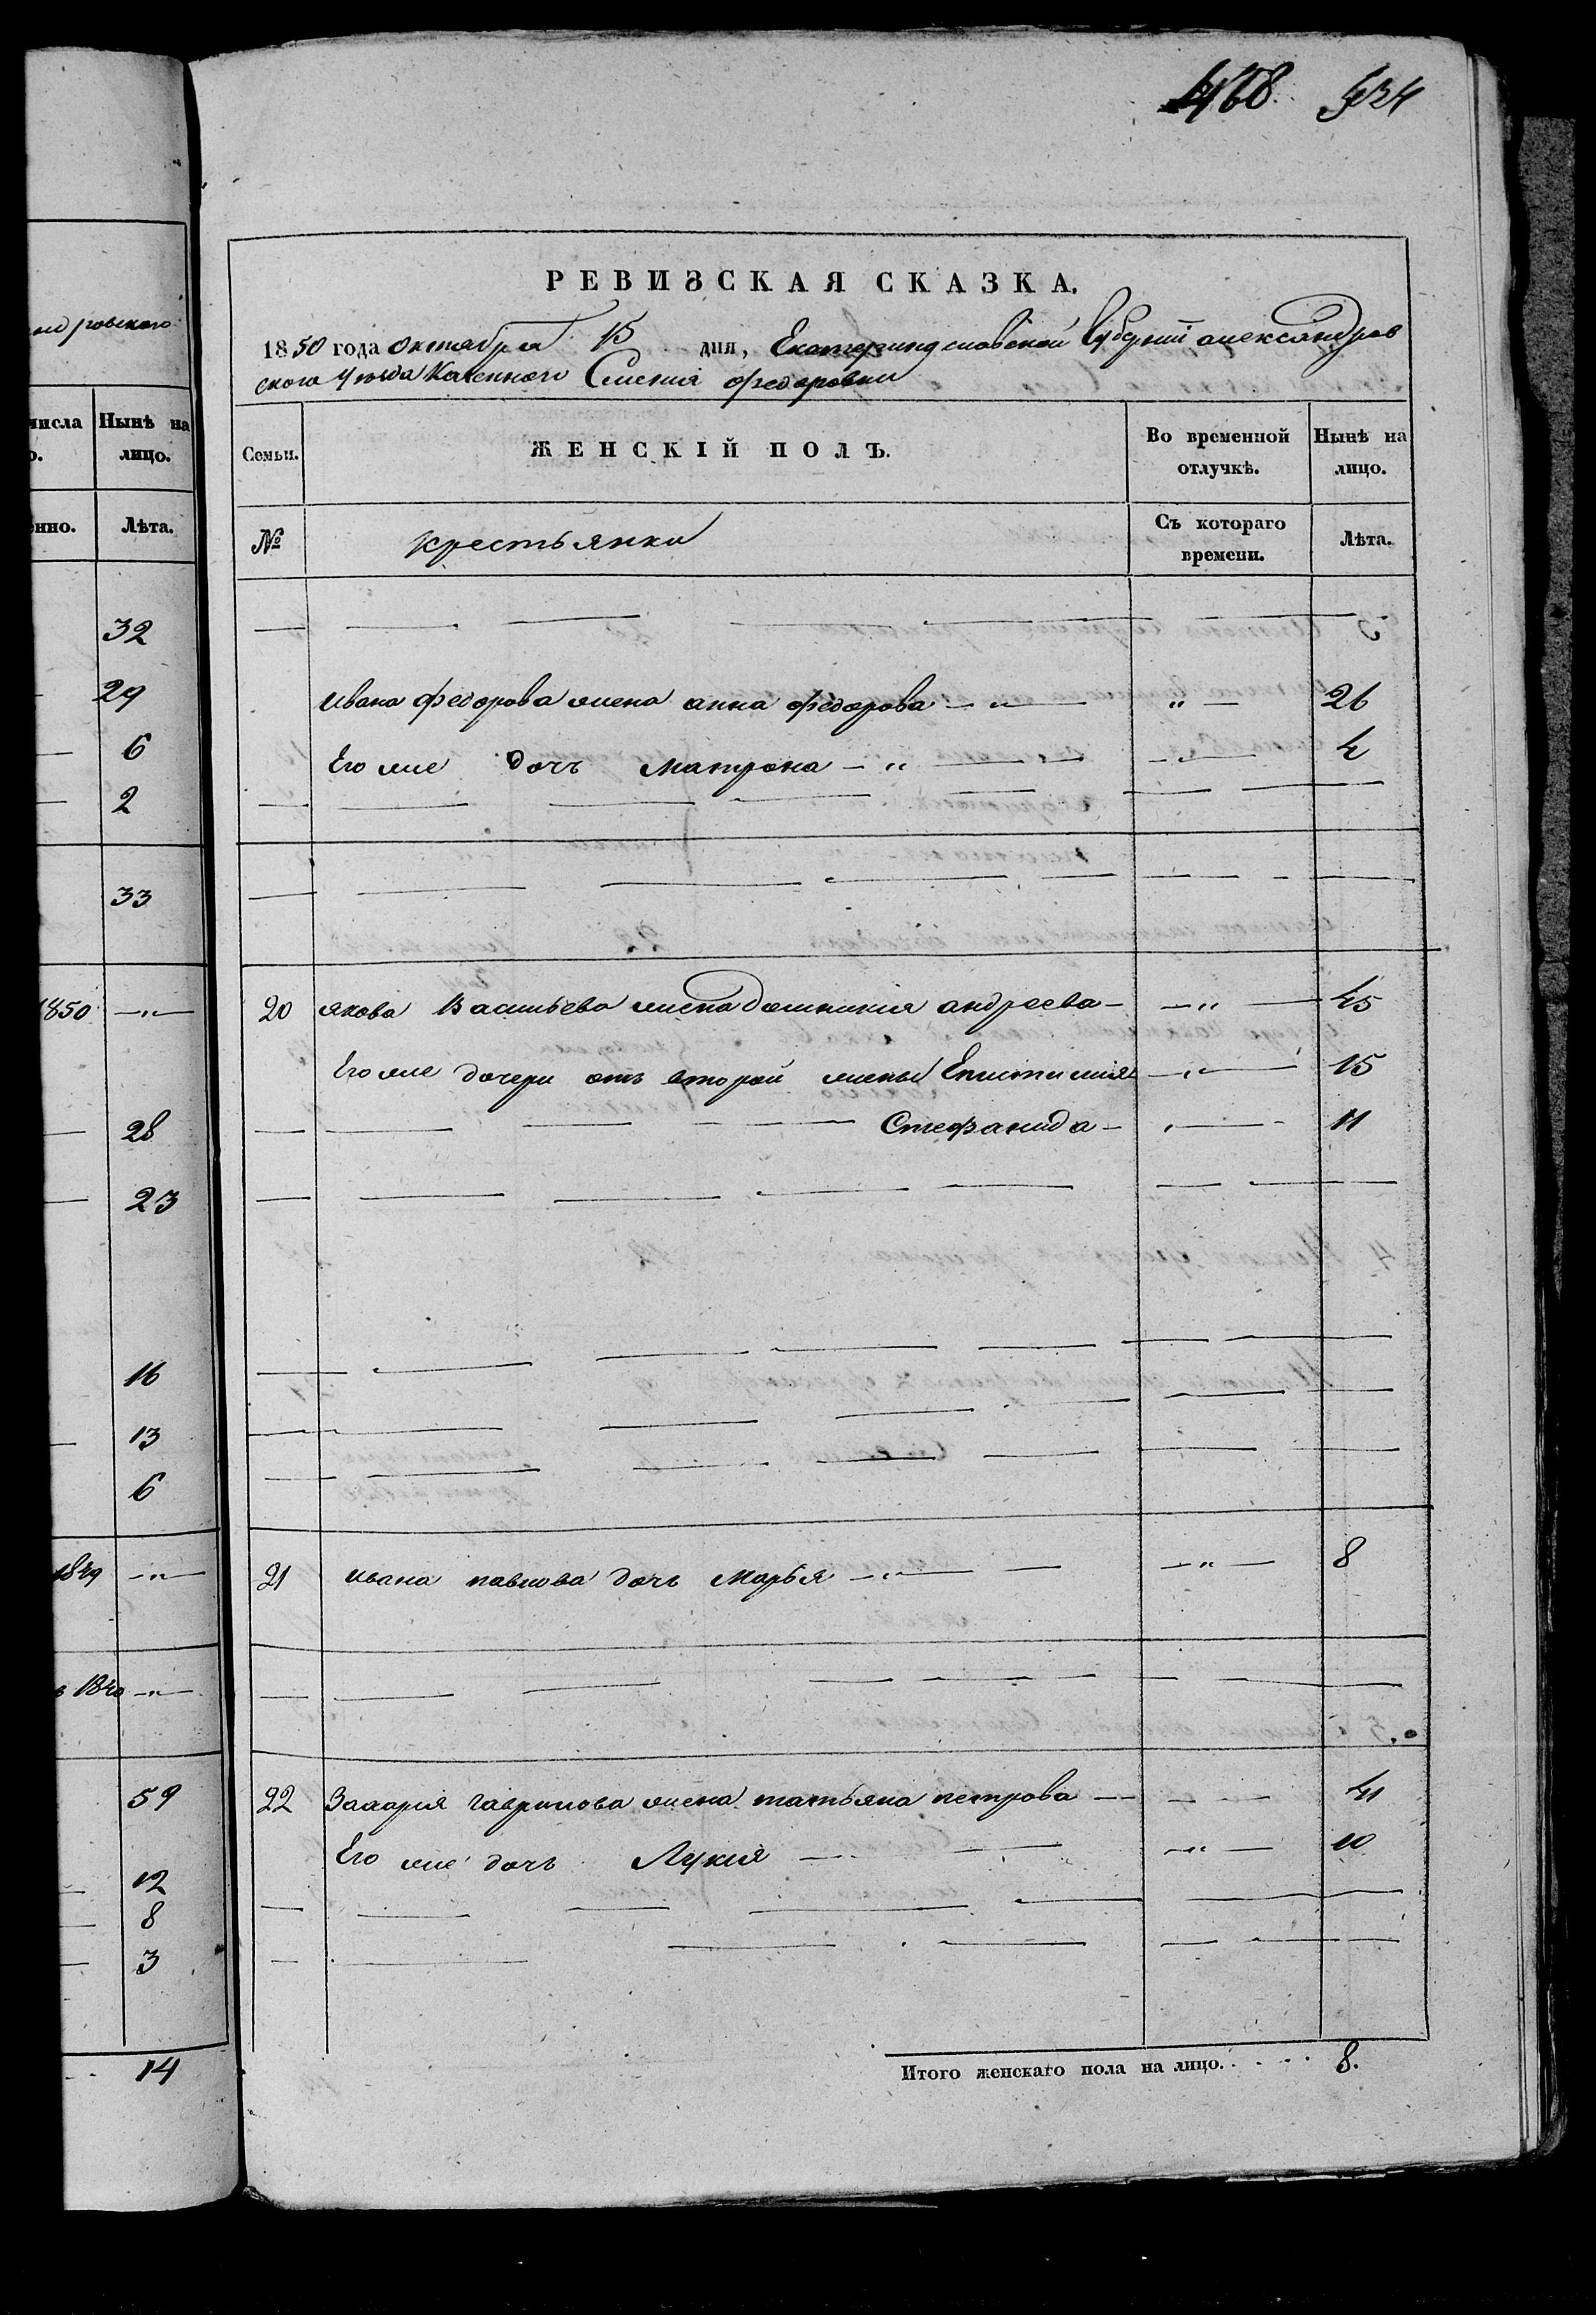 468. 434
РЕВИЗСКАЯ СКАЗКА.
1850 года октября 15 дня, Екатеринославской Губернии александров
ского уѣзда Казенного Селения федоровки
Семьи. ЖЕНСКІЙ ПОЛЪ. Во временной отлучкѣ. Нынѣ на лицо.
№ крестьянки Съ котораго времени. Лѣта.
Ивана федорова жена анна федорова — „ — „ — 26
Его же дочь матрона — „ — — „ — 4
20 якова Васильева жена домникия андреева — — „ — 45
Его же дочери отъ второй жены Епистимия — „ — 15
Стефанида — — 11
21 ивана павлова дочь марья — „ — — „ — 8
22 Захария гаврилова жена татьяна петрова — — 41
Его же дочь Лукия — — „ — 10
Итого женскаго пола на лицо. . . . . 8.
ндровского
числа Нынѣ на лицо.
Лѣта.
32
29
6
2
33
1850 — „ —
28
23
16
13
6
1849 — „ —
1840 — „ —
59
12
8
3
14